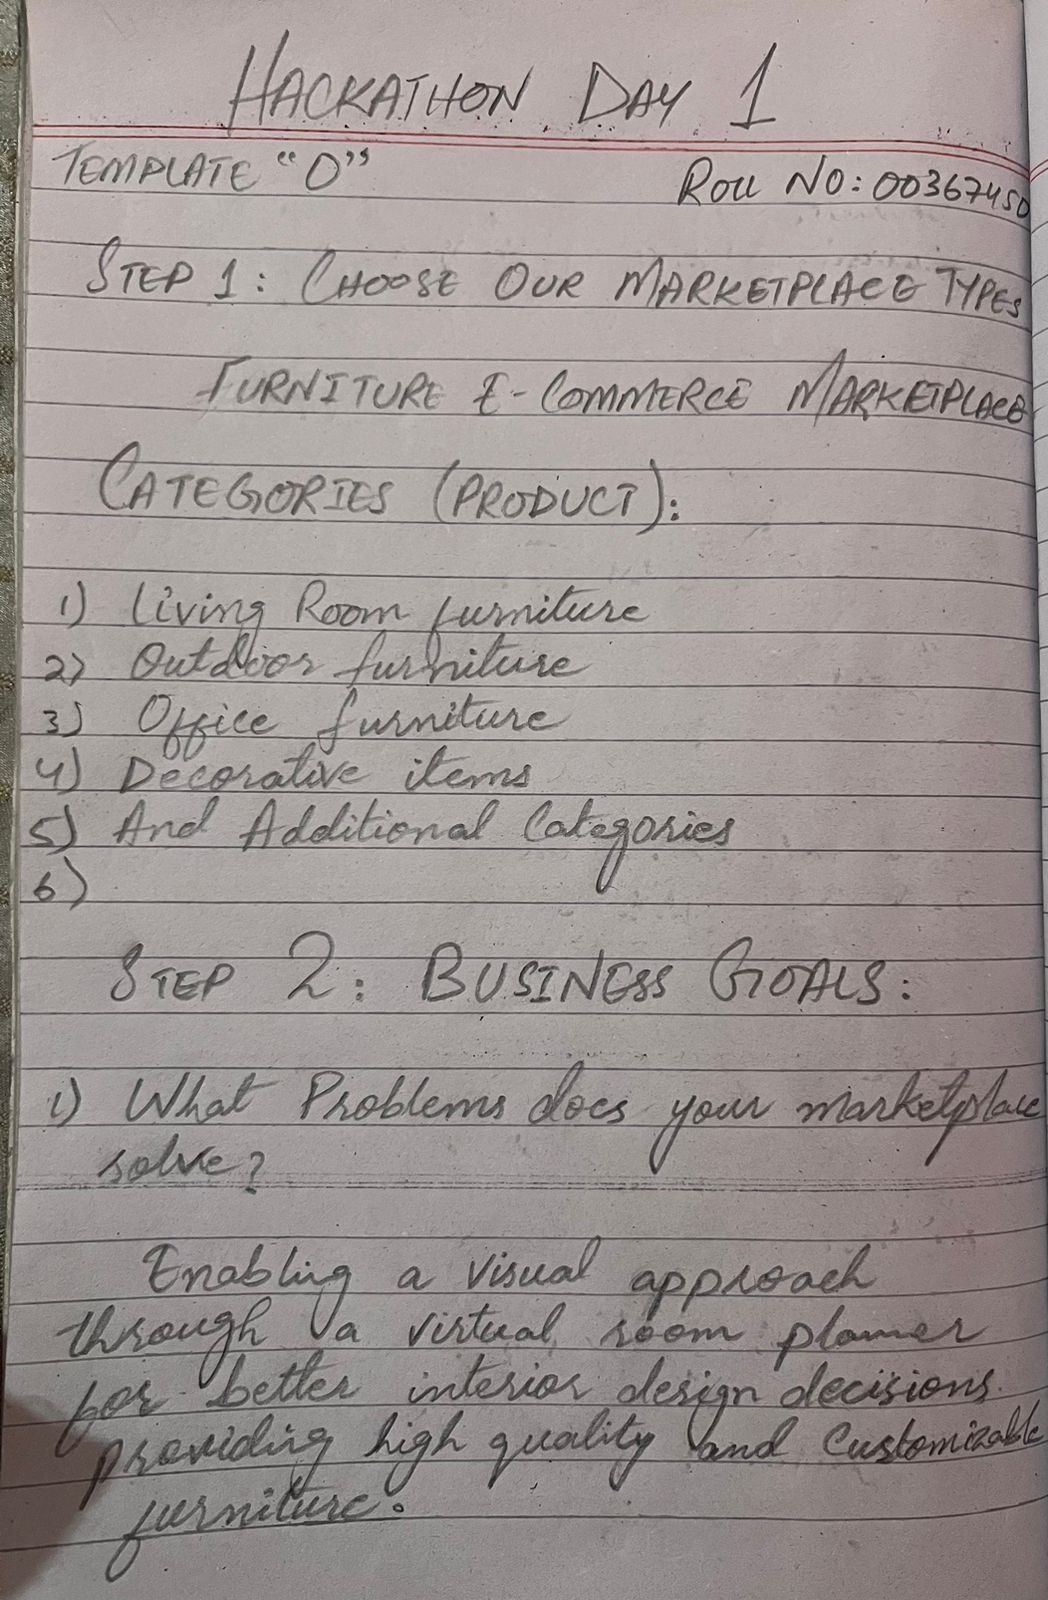 HACKATHON DAY 1
TEMPLATE "0"
ROLL NO: 00367450
STEP 1: CHOOSE OUR MARKETPLACE TYPES
FURNITURE E-COMMERCE MARKETPLACE
CATEGORIES (PRODUCT):
1) Living Room furniture
2) Outdoor furniture
3) Office furniture
4) Decorative items
5) And Additional Categories
6)
STEP 2: BUSINESS GOALS:
1) What Problems does your marketplace
solve?
Enabling a visual approach
through a virtual room planner
for better interior design decisions.
providing high quality and Customizable
furniture.